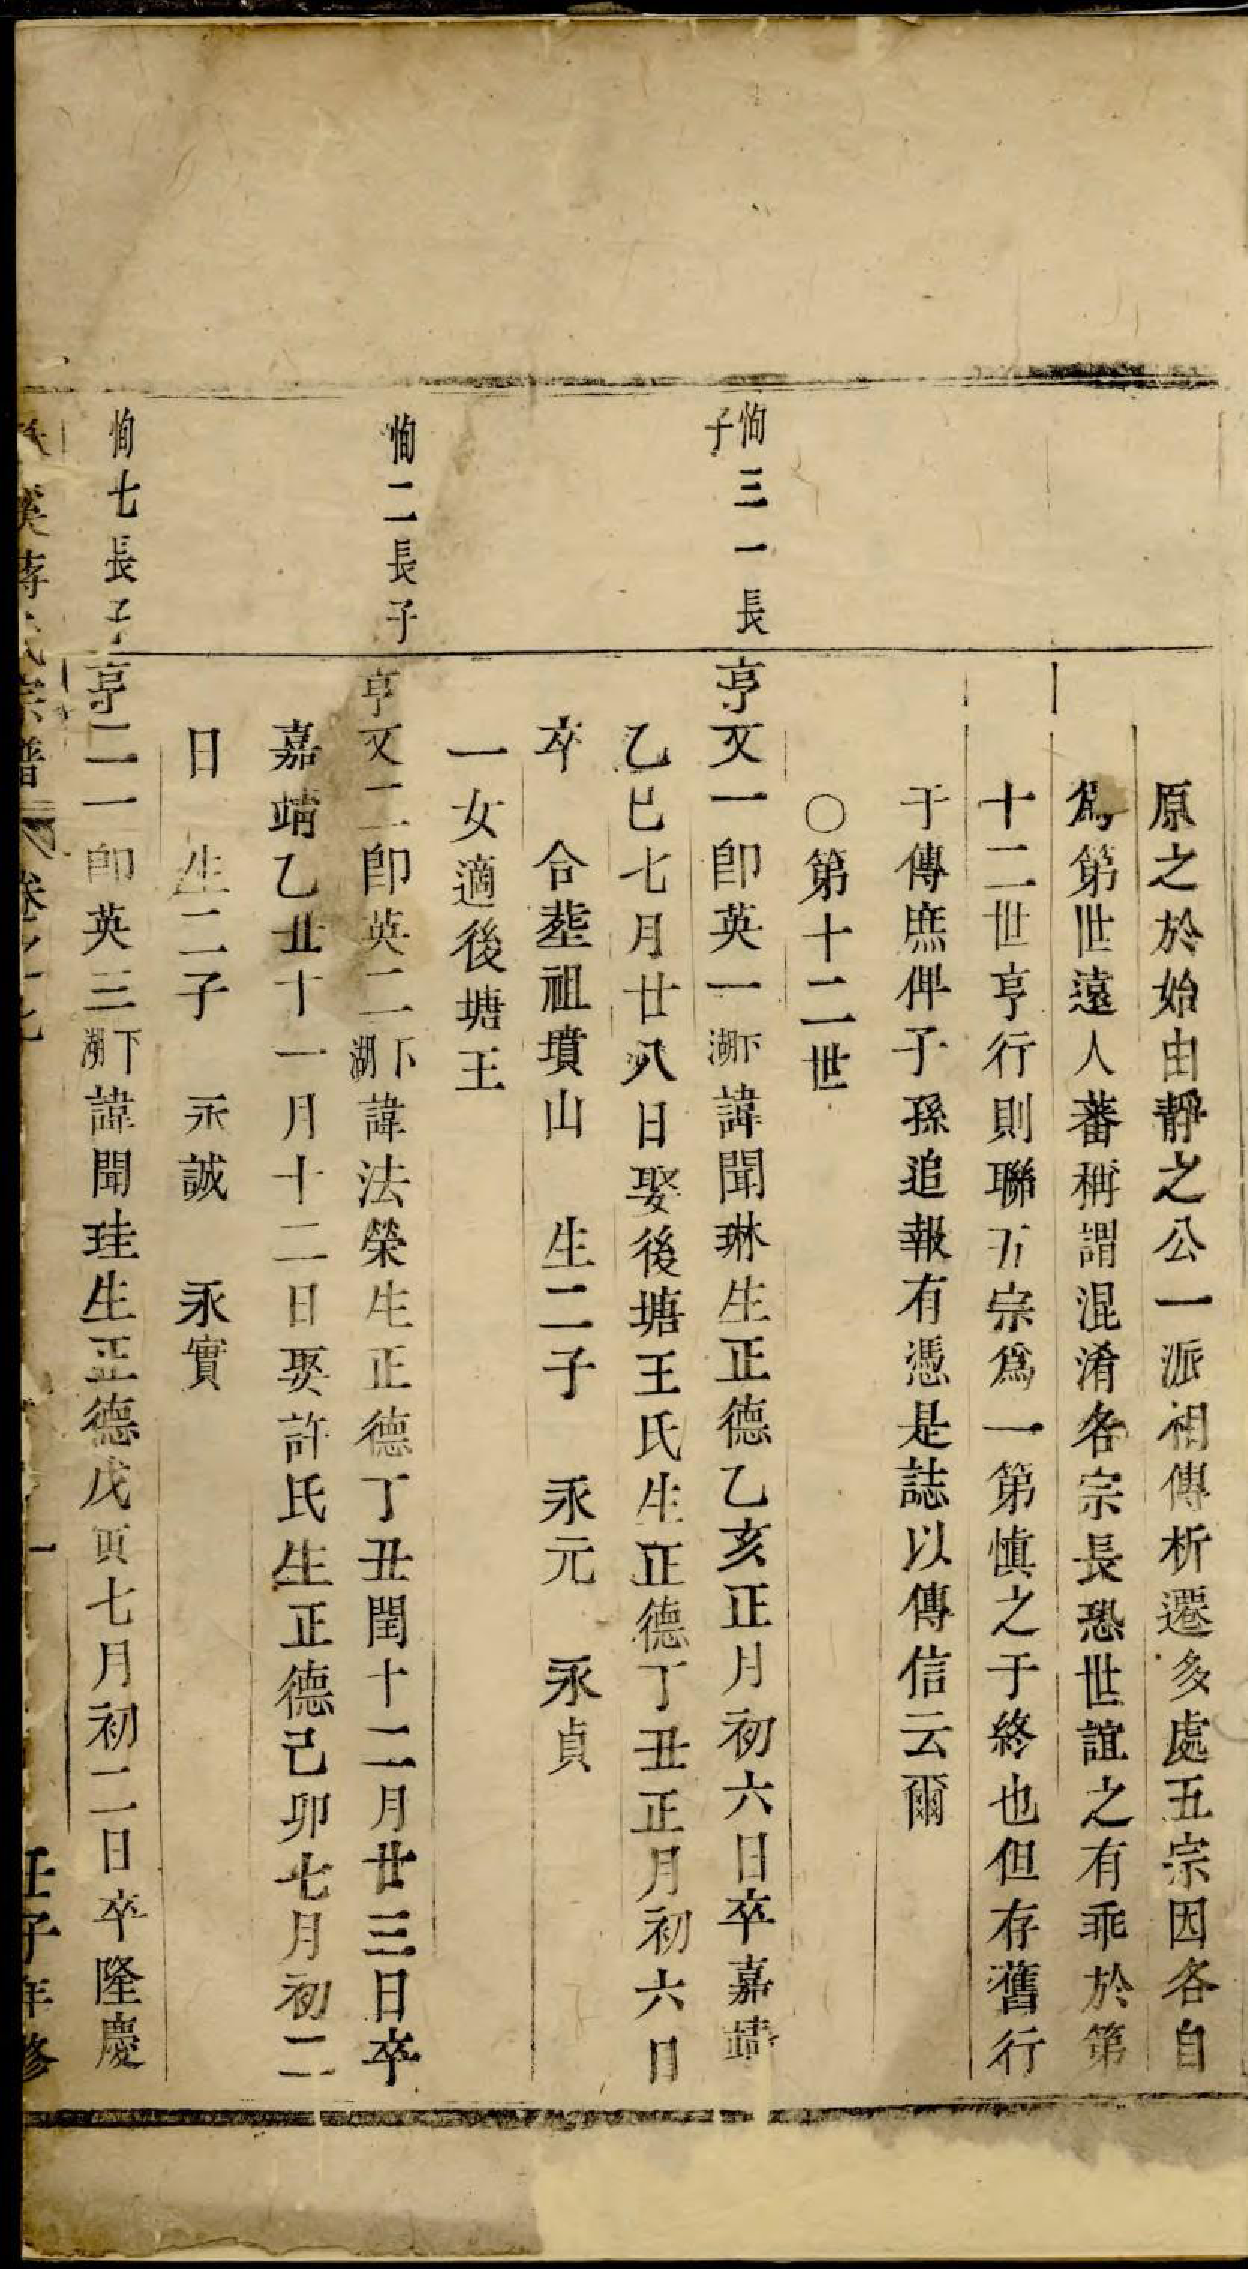 原之於始由靜之公一派相傳析遷多處五宗因各自
爲第世遠人蕃稱謂混淆各宗長恐世誼之有乖於第
十二世亨行則聯五宗爲一第愼之于終也但存舊行
于傳庶俾子孫追報有憑是誌以傳信云爾
○第十二世
恂三一長子
亨文一卽英一下湖諱聞琳生正德乙亥正月初六日卒嘉靖
乙巳七月廿八日娶後塘王氏生正德丁丑正月初六日
卒 合塟祖墳山 生二子 永元 永貞
一女適後塘王
恂二長子
亨文二卽英二下湖諱法榮生正德丁丑閏十二月廿三日卒
嘉靖乙丑十一月十二日娶許氏生正德己卯七月初二
日 生二子 永誠 永實
恂七長子
亨二一卽英三下湖諱聞珪生正德戊寅七月初二日卒隆慶
溪蔣氏宗譜 卷之 一 壬子年修